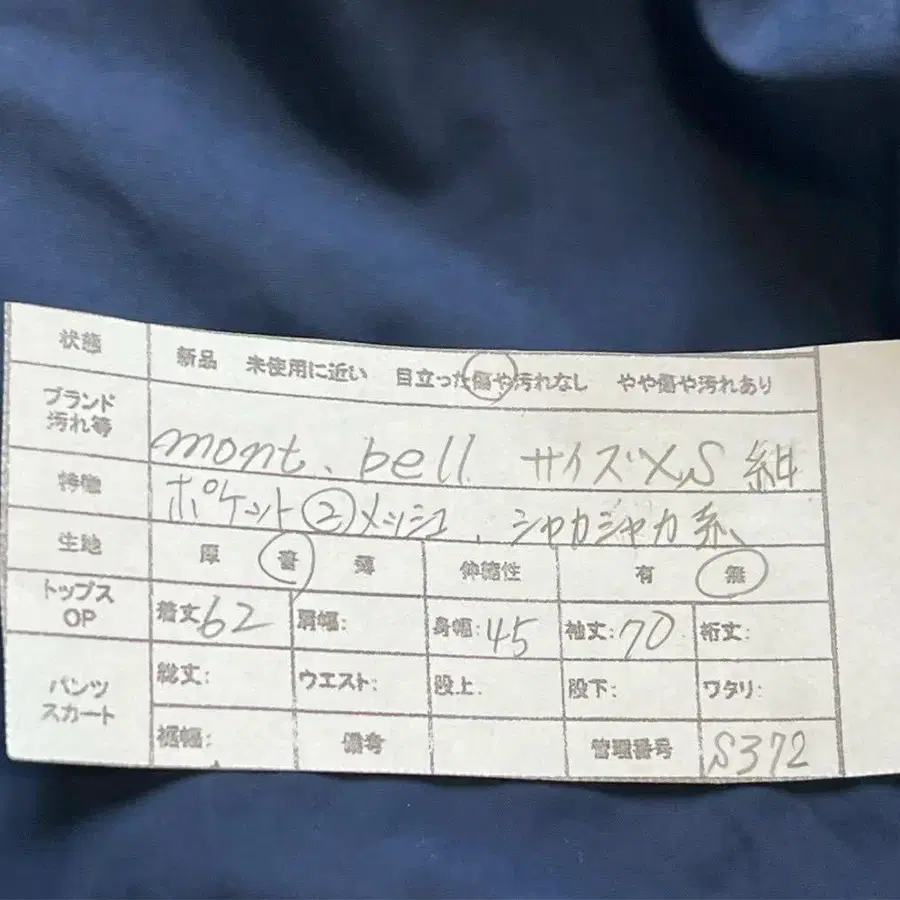 状態 新品 未使用に近い 目立った傷や汚れなし やや傷や汚れあり
ブランド
汚れ等 mont.bell サイズXS 紺
特徴 ポケット②メッシュ、シャカシャカ系、
生地 厚 普 薄 伸縮性 有 無
トップス
OP 着丈62 肩幅: 身幅:45 袖丈:70 裄丈:
パンツ
スカート 総丈: ウエスト: 股上: 股下: ワタリ:
裾幅: 備考 管理番号 S372